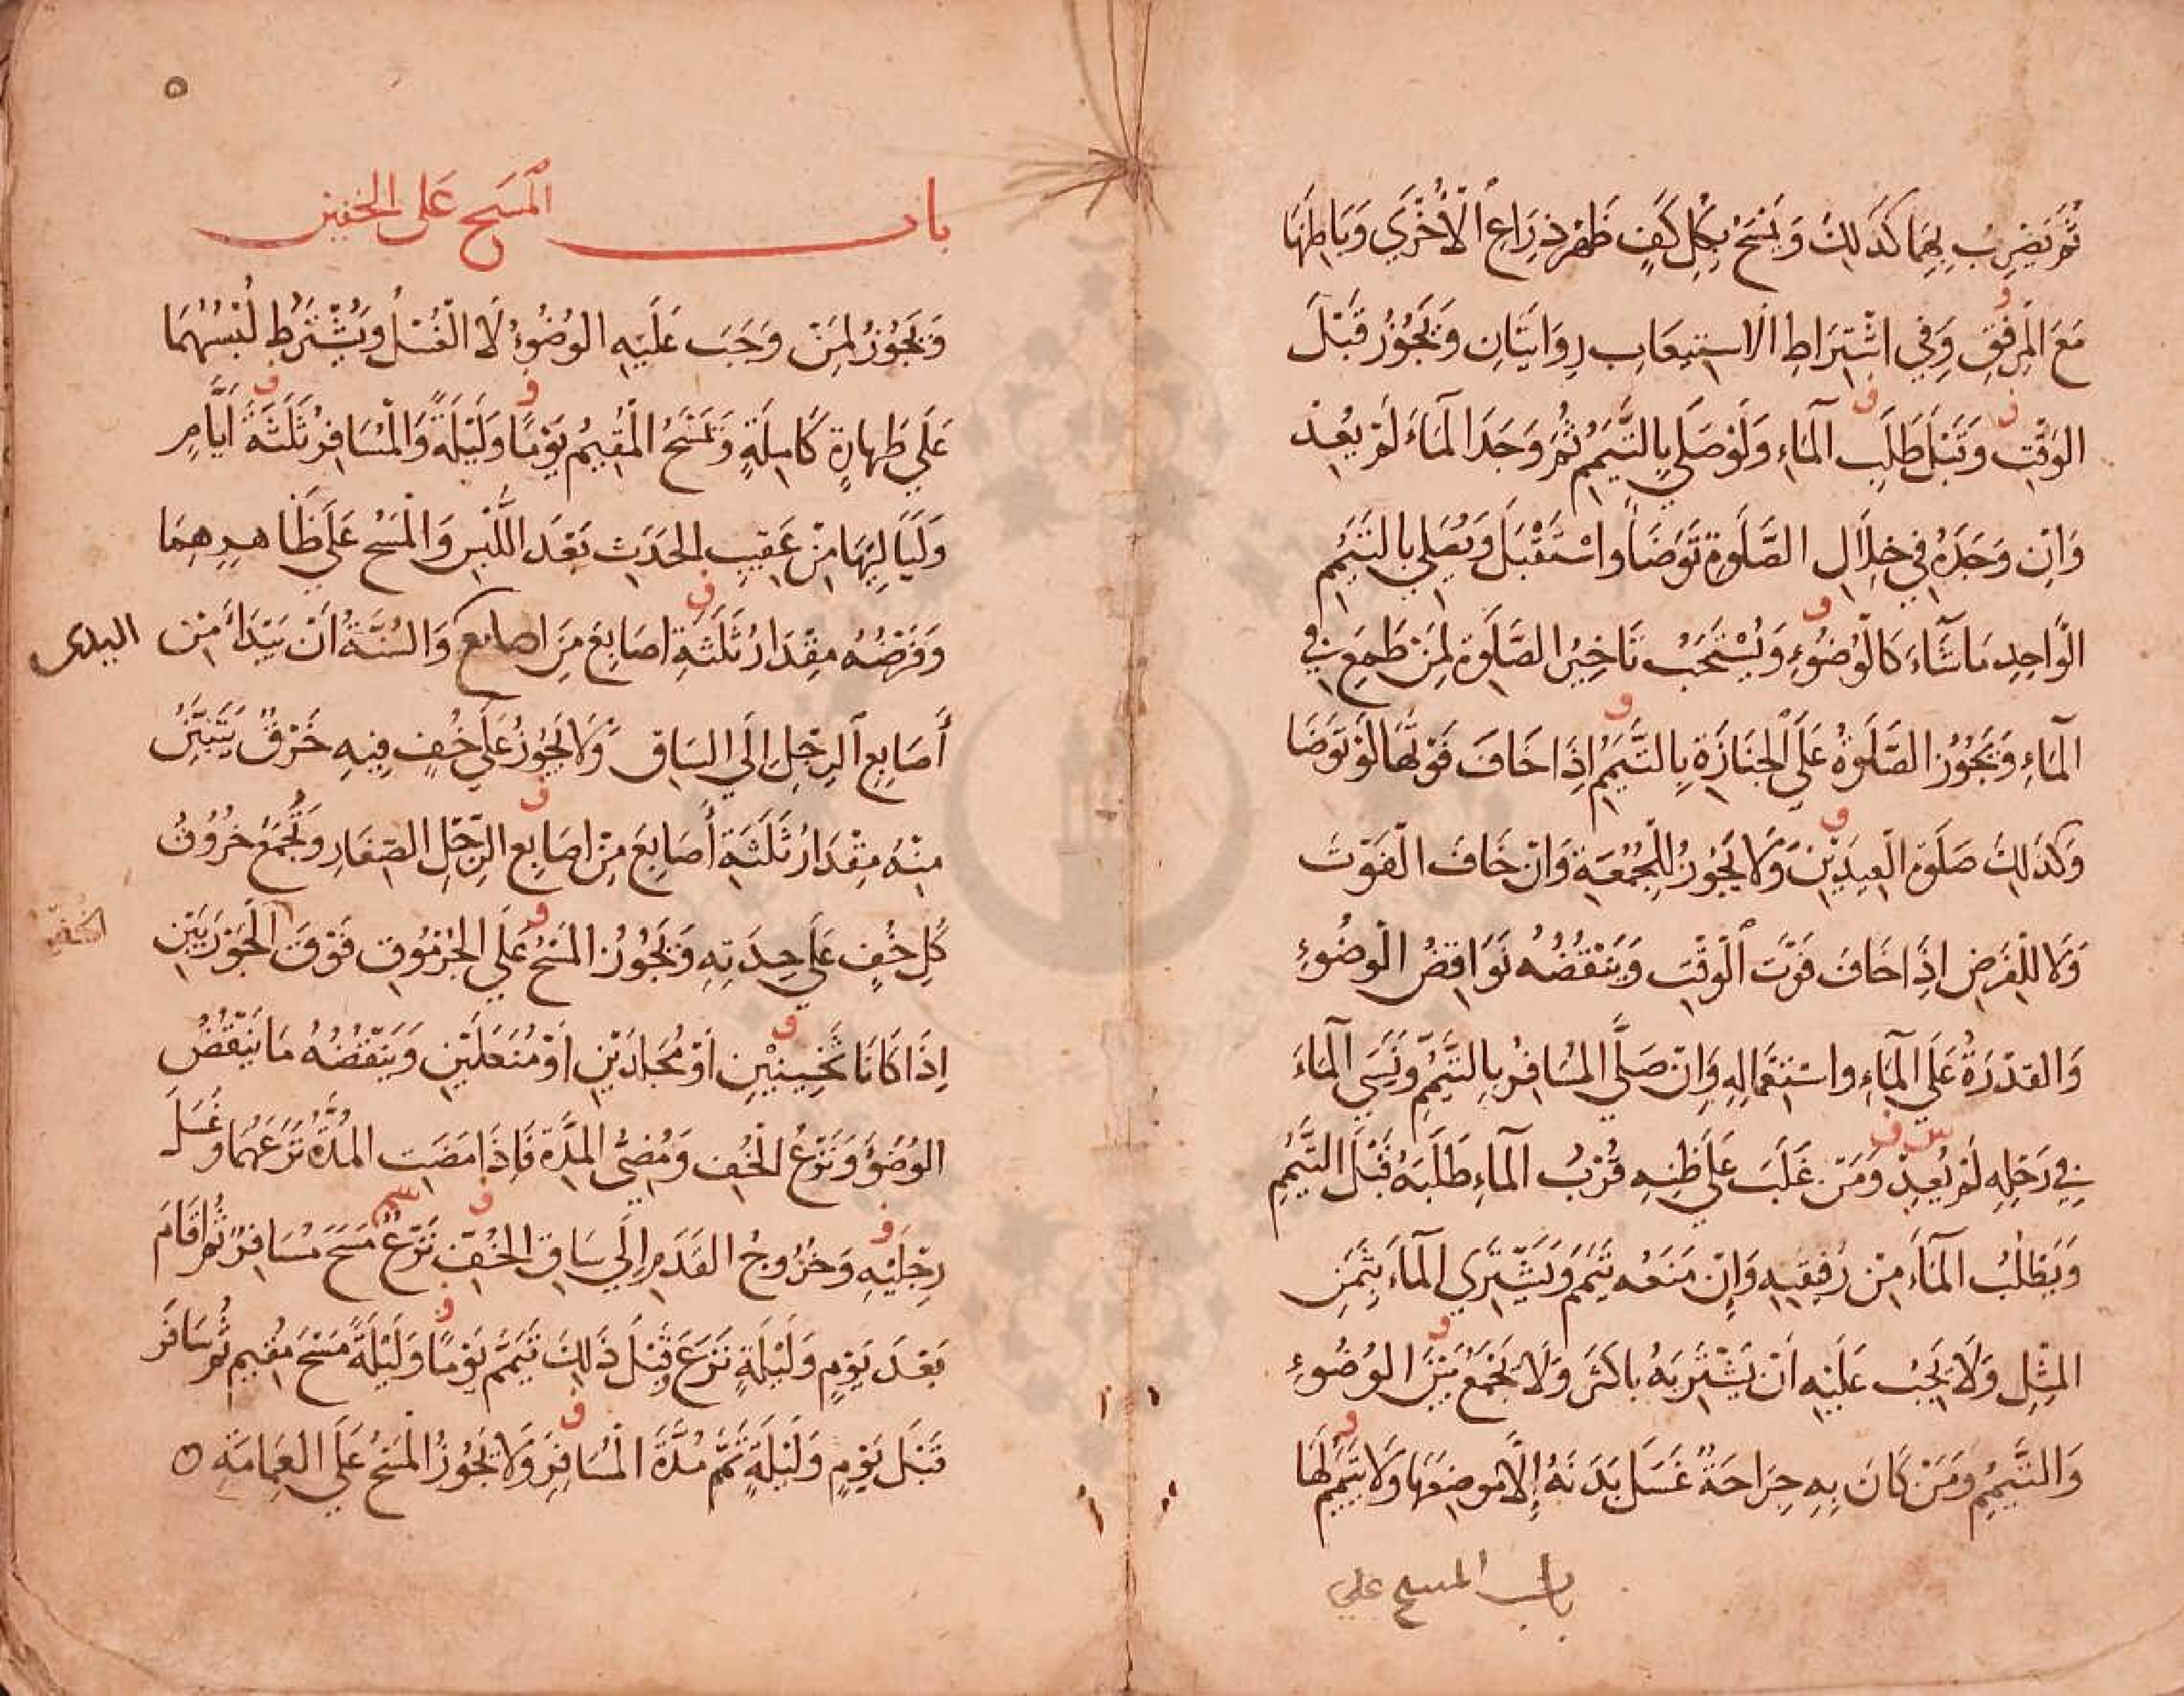 ثُمَّ يَضْرِبُ بِهِمَا كَذَلِكَ وَيَمْسَحُ بِكُلِّ كَفٍّ ظَهْرَ ذِرَاعِ الْأُخْرَى وَبَاطِنَهَا
مَعَ الْمِرْفَقِ وَفِي اشْتِرَاطِ الِاسْتِيعَابِ رِوَايَتَانِ وَيَجُوزُ قَبْلَ
الْوَقْتِ وَقَبْلَ طَلَبِ الْمَاءِ وَلَوْ صَلَّى بِالتَّيَمُّمِ ثُمَّ وَجَدَ الْمَاءَ لَمْ يُعِدْ
وَإِنْ وَجَدَهُ فِي خِلَالِ الصَّلَوةِ تَوَضَّأَ وَاسْتَقْبَلَ وَيُصَلِّي بِالتَّيَمُّمِ
الْوَاحِدِ مَا شَاءَ كَالْوُضُوءِ وَيُسْتَحَبُّ تَاخِيرُ الصَّلَوةِ لِمَنْ طَمِعَ فِي
الْمَاءِ وَيَجُوزُ الصَّلَوةُ عَلَى الْجَنَازَةِ بِالتَّيَمُّمِ إِذَا خَافَ فَوْتَهَا لَوْ تَوَضَّا
وَكَذَلِكَ صَلَوةِ الْعِيدَيْنِ وَلَا يَجُوزُ لِلْجُمُعَةِ وَإِنْ خَافَ الْفَوْتَ
وَلَا لِلْفَرْضِ إِذَا خَافَ فَوْتَ الْوَقْتِ وَيَنْقُضُهُ نَوَاقِضُ الْوُضُوءِ
وَالْقُدْرَةُ عَلَى الْمَاءِ وَاسْتِعْمَالِهِ وَإِنْ صَلَّى الْمُسَافِرُ بِالتَّيَمُّمِ وَنَسِيَ الْمَاءَ
فِي رَحْلِهِ لَمْ يُعِدْ وَمَنْ غَلَبَ عَلَى ظَنِّهِ قُرْبُ الْمَاءِ طَلَبَهُ قَبْلَ التَّيَمُّمِ
وَيَطْلُبُ الْمَاءَ مِنْ رَفِيقِهِ وَإِنْ مَنَعَهُ تَيَمَّمَ وَيَشْتَرِي الْمَاءَ بِثَمَنِ
الْمِثْلِ وَلَا يَجِبُ عَلَيْهِ أَنْ يَشْتَرِيَهُ بِاكْثَرَ وَلَا يَجْمَعُ بَيْنَ الْوُضُوءِ
وَالتَّيَمُّمِ وَمَنْ كَانَ بِهِ جِرَاحَةٌ غَسَلَ بَدَنَهُ إِلَّا مَوْضِعَهَا وَلَا يَتَيَمَّمُ لَهَا
باب المسح علي
٥
باب الْمَسَح عَلَى الخفين
وَيَجُوزُ لِمَنْ وَجَبَ عَلَيْهِ الْوُضُوءُ لَا الْغُسْلُ وَيُشْتَرَطُ لُبْسُهُمَا
عَلَي طَهارةٍ كَامِلَةٍ وَيَمْسَحُ الْمُقِيمُ يَوْمًا وَلَيْلَةً وَالْمُسَافِرُ ثَلَثَةَ أَيَّامٍ
وَلَيَالِيهَا مِنْ عَقِيبِ الْحَدَثِ بَعْدَ اللُّبْسِ وَالْمَسْحُ عَلَي ظَاهِرِهِمَا
وَفَرْضُهُ مِقْدَارُ ثَلَثَةِ اصَابِعَ مِنَ اصابع وَالسُّنَّةُ أَنْ يَبْدَأَ مِنْ
اليدى
أَصَابِعِ الرِّجْلِ إِلَى السَّاقِ وَلَا يَجُوزُ عَلَي خُفٍّ فِيهِ خَرْقٌ يَتَبَيَّنُ
مِنْهُ مِقْدَارُ ثَلَثَةِ أَصَابِعَ مِنْ اصَابِعِ الرِّجْلِ الصِّغَارِ وَتُجْمَعُ خُرُوقُ
كُلِّ خُفٍّ عَلَي حِدَتِهِ وَيَجُوزُ الْمَسْحُ عَلَي الْجُرْمُوقِ فَوْقَ الْجَوْرَبَيْنِ
الخف
إِذَا كَانَا ثَخِينَيْنِ أَوْ مُجَلَّدَيْنِ اوْ مُنَعَّلَيْنِ وَيَنْقُضُهُ مَا يَنْقُضُ
الْوُضُوءَ وَنَزْعُ الْخُفِّ وَمُضِيُّ الْمُدَّةِ فَإِذَا مَضَتِ الْمُدَّةُ نَزَعَهُمَا وَغَسَلَ
رِجْلَيْهِ وَخُرُوجُ الْقَدَمِ إِلَي سَاقِ الْخُفِّ نَزْعٌ مَسَحَ مُسَافِرٌ ثُمَّ اقَامَ
بَعْدَ يَوْمٍ وَلَيْلَةٍ نَزَعَ وَقَبْلَ ذَلِكَ تَيَمَّمَ يَوْمًا وَلَيْلَةً مَسَحَ مُقِيمٌ ثُمَّ سَافَرَ
قَبْلَ يَوْمٍ وَلَيْلَةٍ تَمَّمَ مُدَّةَ الْمُسَافِرِ وَلَا يَجُوزُ الْمَسْحُ عَلَى الْعِمَامَةِ ه